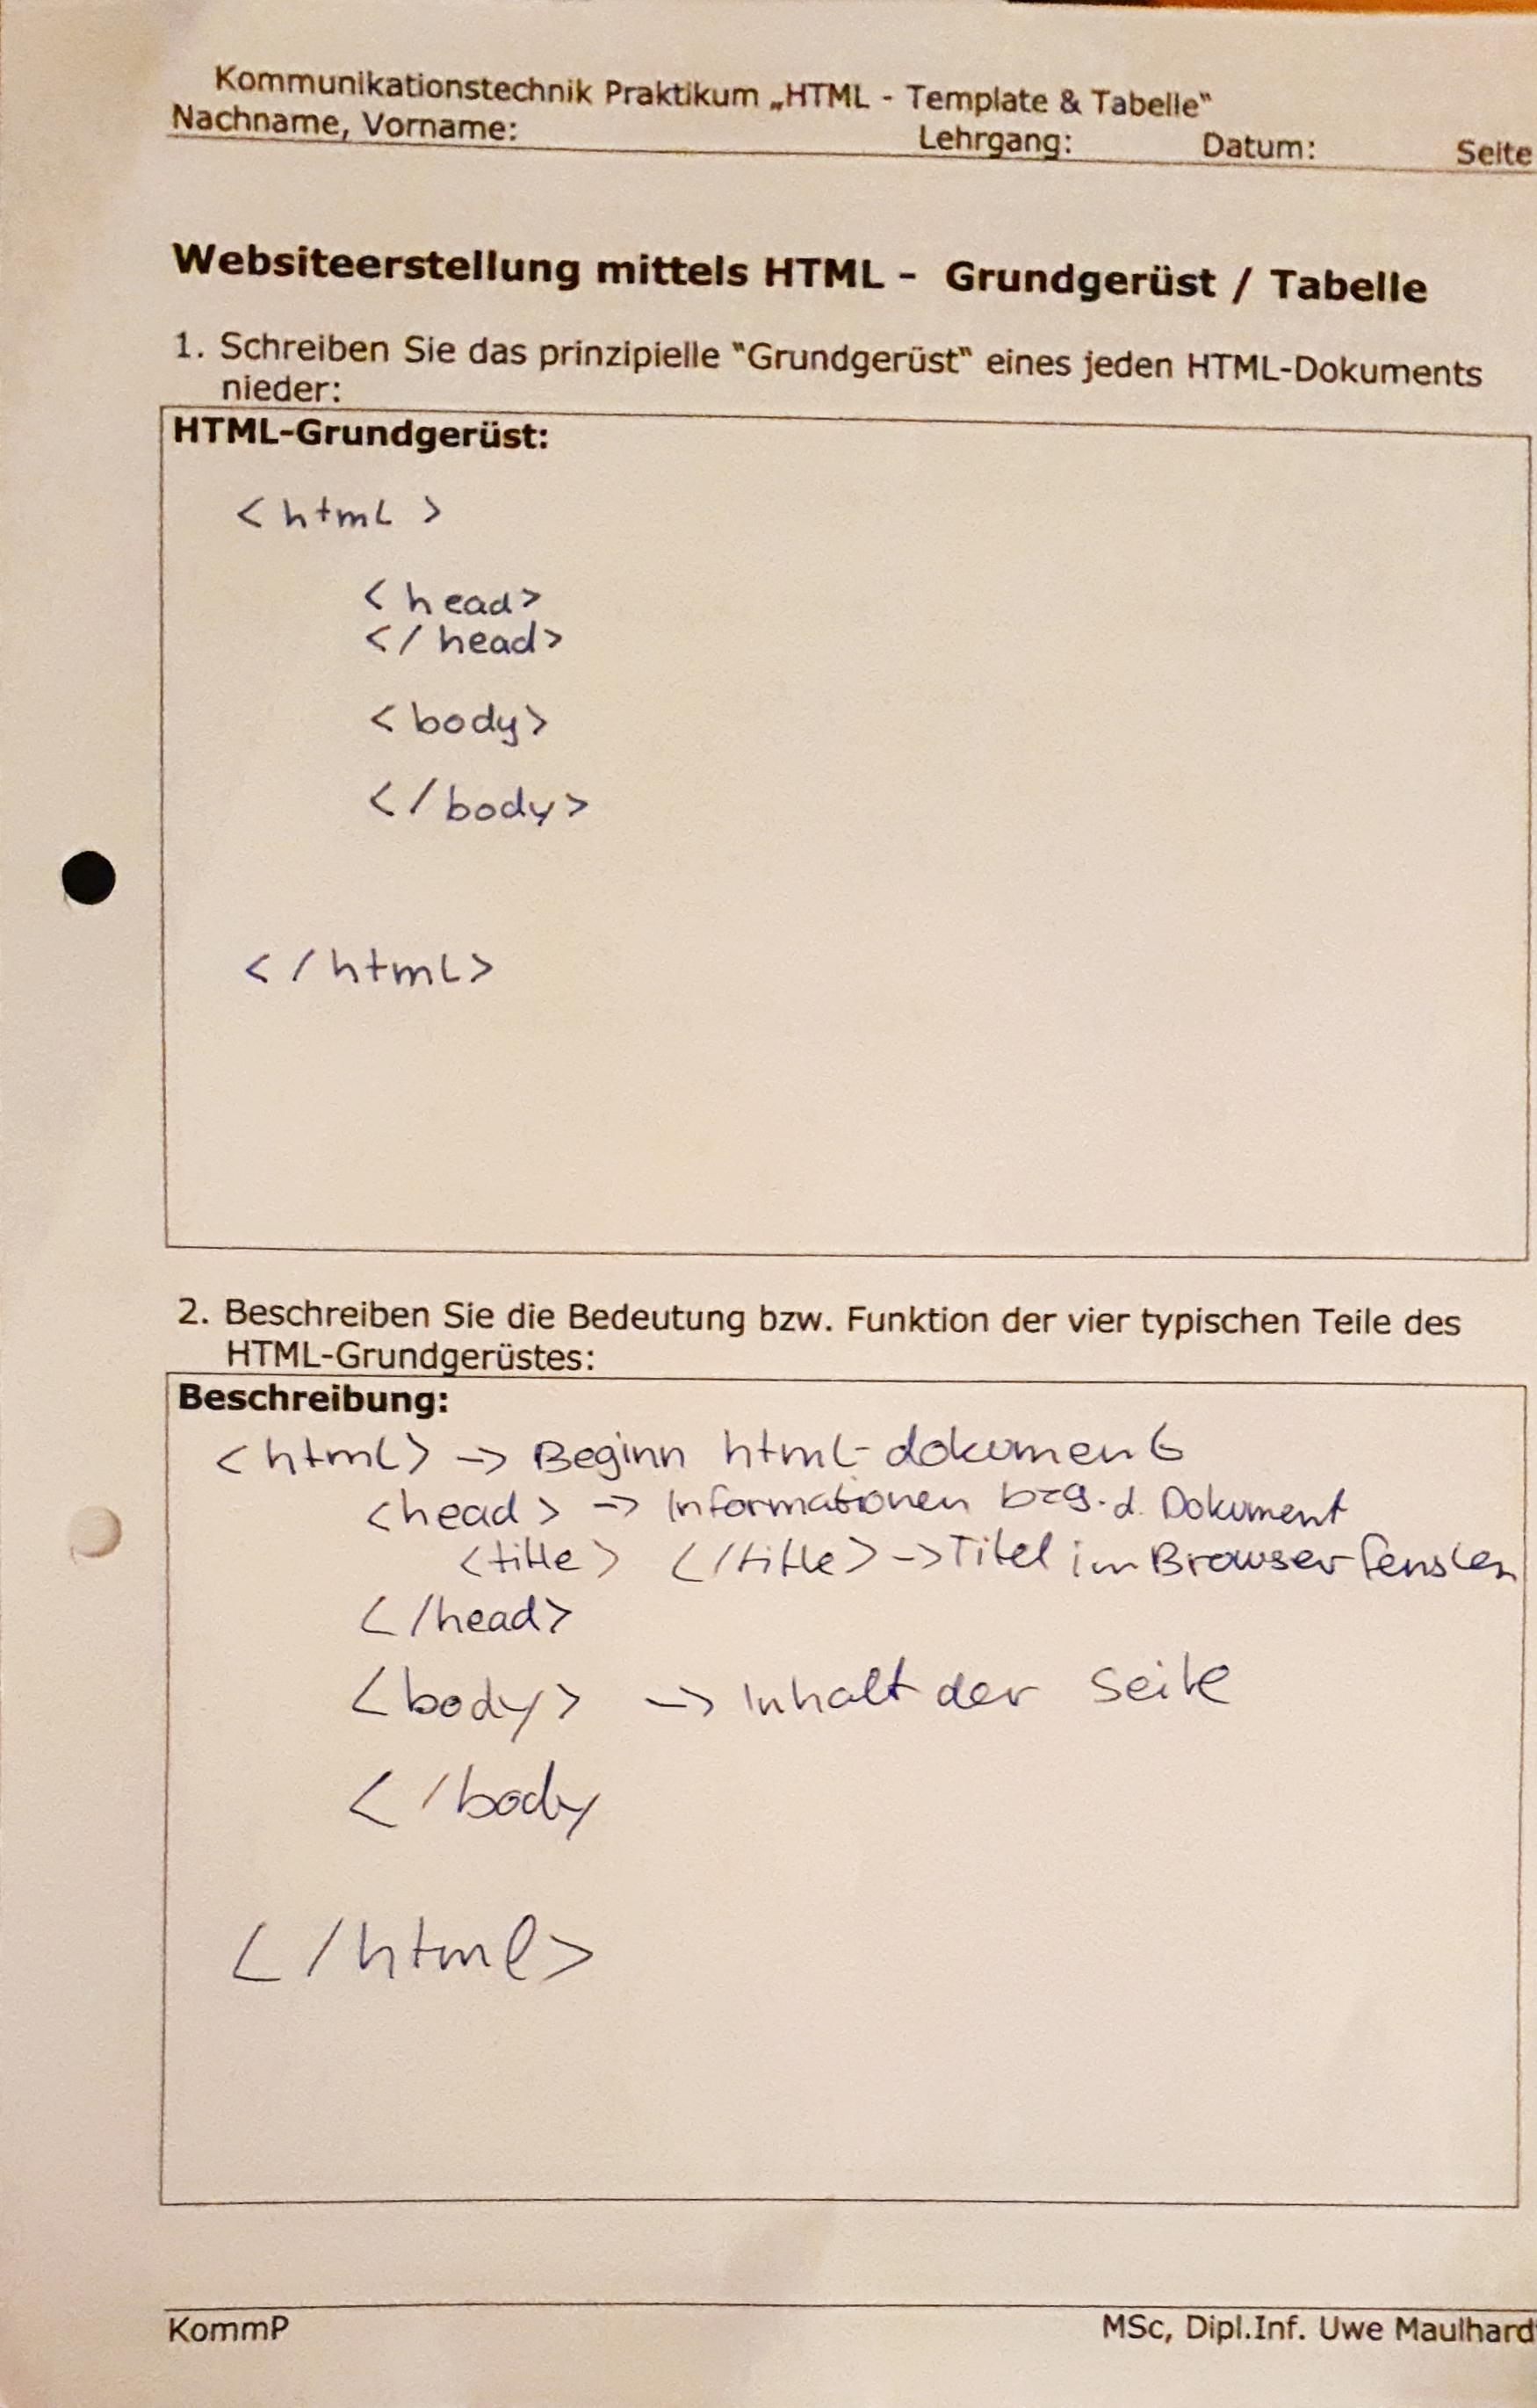 Kommunikationstechnik Praktikum „HTML - Template & Tabelle“
Nachname, Vorname: Lehrgang: Datum: Seite
Websiteerstellung mittels HTML - Grundgerüst / Tabelle
1. Schreiben Sie das prinzipielle "Grundgerüst" eines jeden HTML-Dokuments
nieder:
HTML-Grundgerüst:
<html>
<head>
</head>
<body>
</body>
</html>
2. Beschreiben Sie die Bedeutung bzw. Funktion der vier typischen Teile des
HTML-Grundgerüstes:
Beschreibung:
<html> -> Beginn html-dokument
<head> -> Informationen bzg. d. Dokument
<title> </title> -> Titel im Browserfenster
</head>
<body> -> Inhalt der Seite
</body
</html>
KommP MSc, Dipl.Inf. Uwe Maulhard